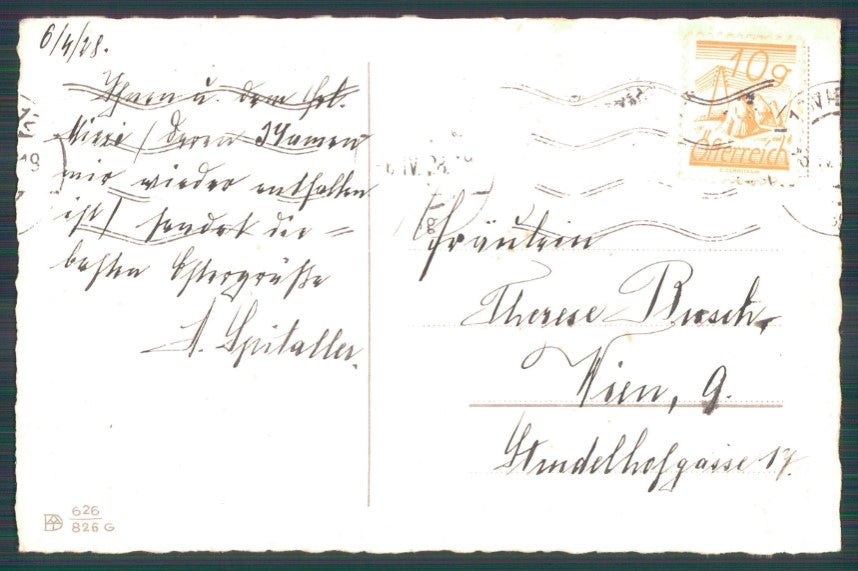 6/4/28.
Ihnen u. dem Frl.
Mizzi (deren Namen
mir wieder entfallen
ist) sendet die =
besten Ostergrüße
A. Spitaller.
10g
Österreich
Fräulein
Therese Busch,
Wien, 9.
Strudelhofgasse 17.
626
826 G